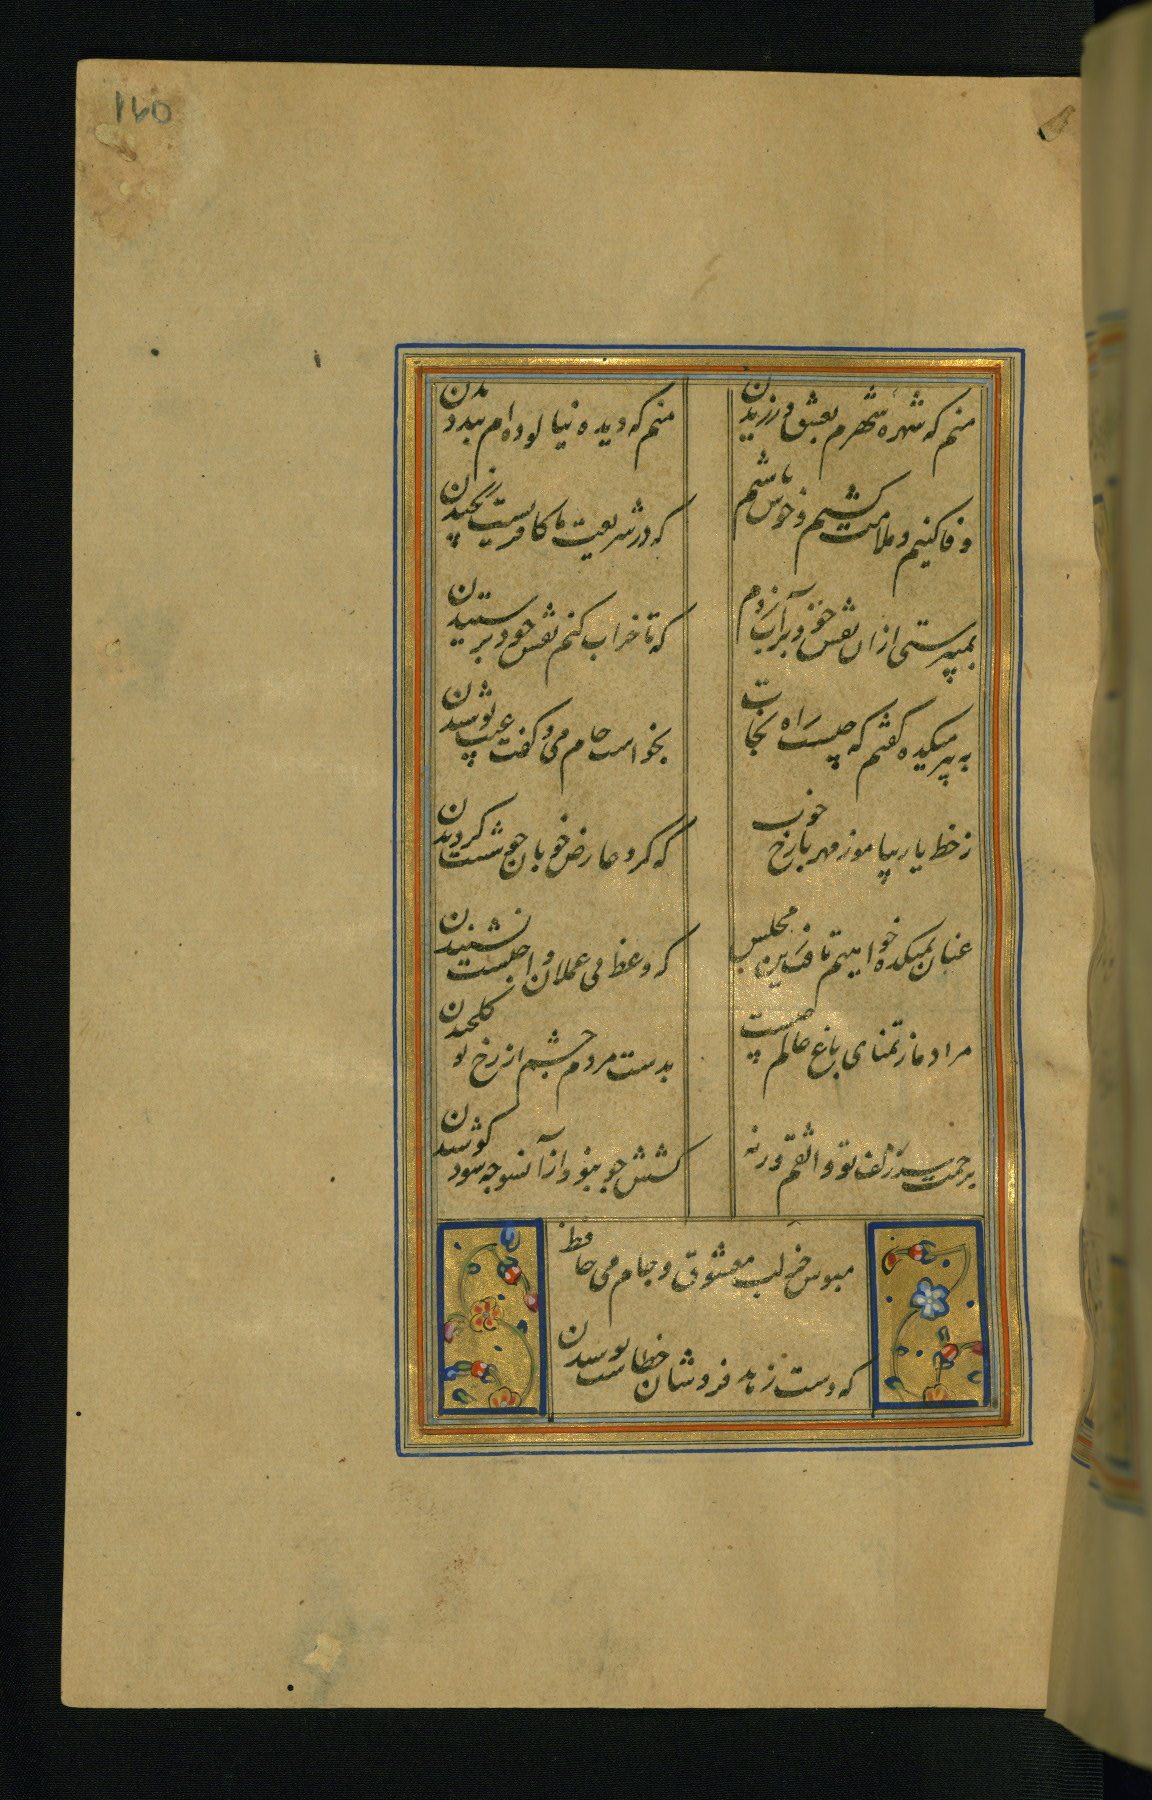 160
منم که شهره شهرم بعشق ورزیدن
منم که دیده نیالوده‌ام ببد دیدن
وفا کنیم و ملامت کشیم و خوش باشیم
که در شریعت ما کافریست رنجیدن
بمی پرستی ازان نقش خود بر آب زدم
که تا خراب کنم نقش خود پرستیدن
به پیر میکده گفتم که چیست راه نجات
بخواست جام می و گفت عیب پوشیدن
ز خط یار بیاموز مهر با رخ خوب
که گرد عارض خوبان خوشست گردیدن
عنان بمیکده خواهیم تافت زین مجلس
که وعظ بی عملان واجبست نشنیدن
مراد ما ز تمنای باغ عالم چیست
بدست مردم چشم از رخ تو گل چیدن
برحمت سر زلف تو واثقم ورنه
کشش چو نبود از آنسو چه سود کوشیدن
مبوس جز لب معشوق و جام می حافظ
که دست زهد فروشان خطاست بوسیدن